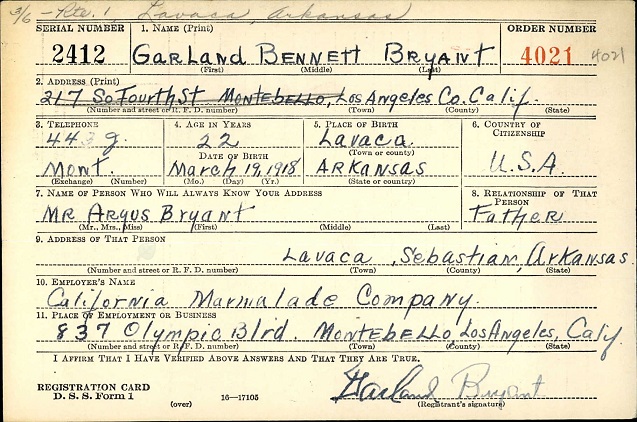 3/6 - Rte. 1, Lavaca, Arkansas
SERIAL NUMBER 1. NAME (Print) ORDER NUMBER
2412 GARLAND BENNETT BRYANT 4021 4021
(First) (Middle) (Last)
2. ADDRESS (Print)
217 So. Fourth St MONTEBELLO, Los Angeles Co. Calif.
(Number and street or R. F. D. number) (Town) (County) (State)
3. TELEPHONE 4. AGE IN YEARS 5. PLACE OF BIRTH 6. COUNTRY OF CITIZENSHIP
22 Lavaca
DATE OF BIRTH (Town or county)
Mont. March 19, 1918 ARKANSAS U.S.A.
(Exchange) (Number) (Mo.) (Day) (Yr.) (State or country)
7. NAME OF PERSON WHO WILL ALWAYS KNOW YOUR ADDRESS 8. RELATIONSHIP OF THAT PERSON
MR Argus Bryant Father
(Mr., Mrs., Miss) (First) (Middle) (Last)
9. ADDRESS OF THAT PERSON
Lavaca, Sebastian, Arkansas.
(Number and street or R. F. D. number) (Town) (County) (State)
10. EMPLOYER'S NAME
California Marmalade Company.
11. PLACE OF EMPLOYMENT OR BUSINESS
837 Olympic Blvd. MONTEBELLO, Los Angeles, Calif.
(Number and street or R. F. D. number) (Town) (County) (State)
I AFFIRM THAT I HAVE VERIFIED ABOVE ANSWERS AND THAT THEY ARE TRUE.
REGISTRATION CARD
D. S. S. Form 1 (over) 16-17105 Garland Bryant
(Registrant's signature)